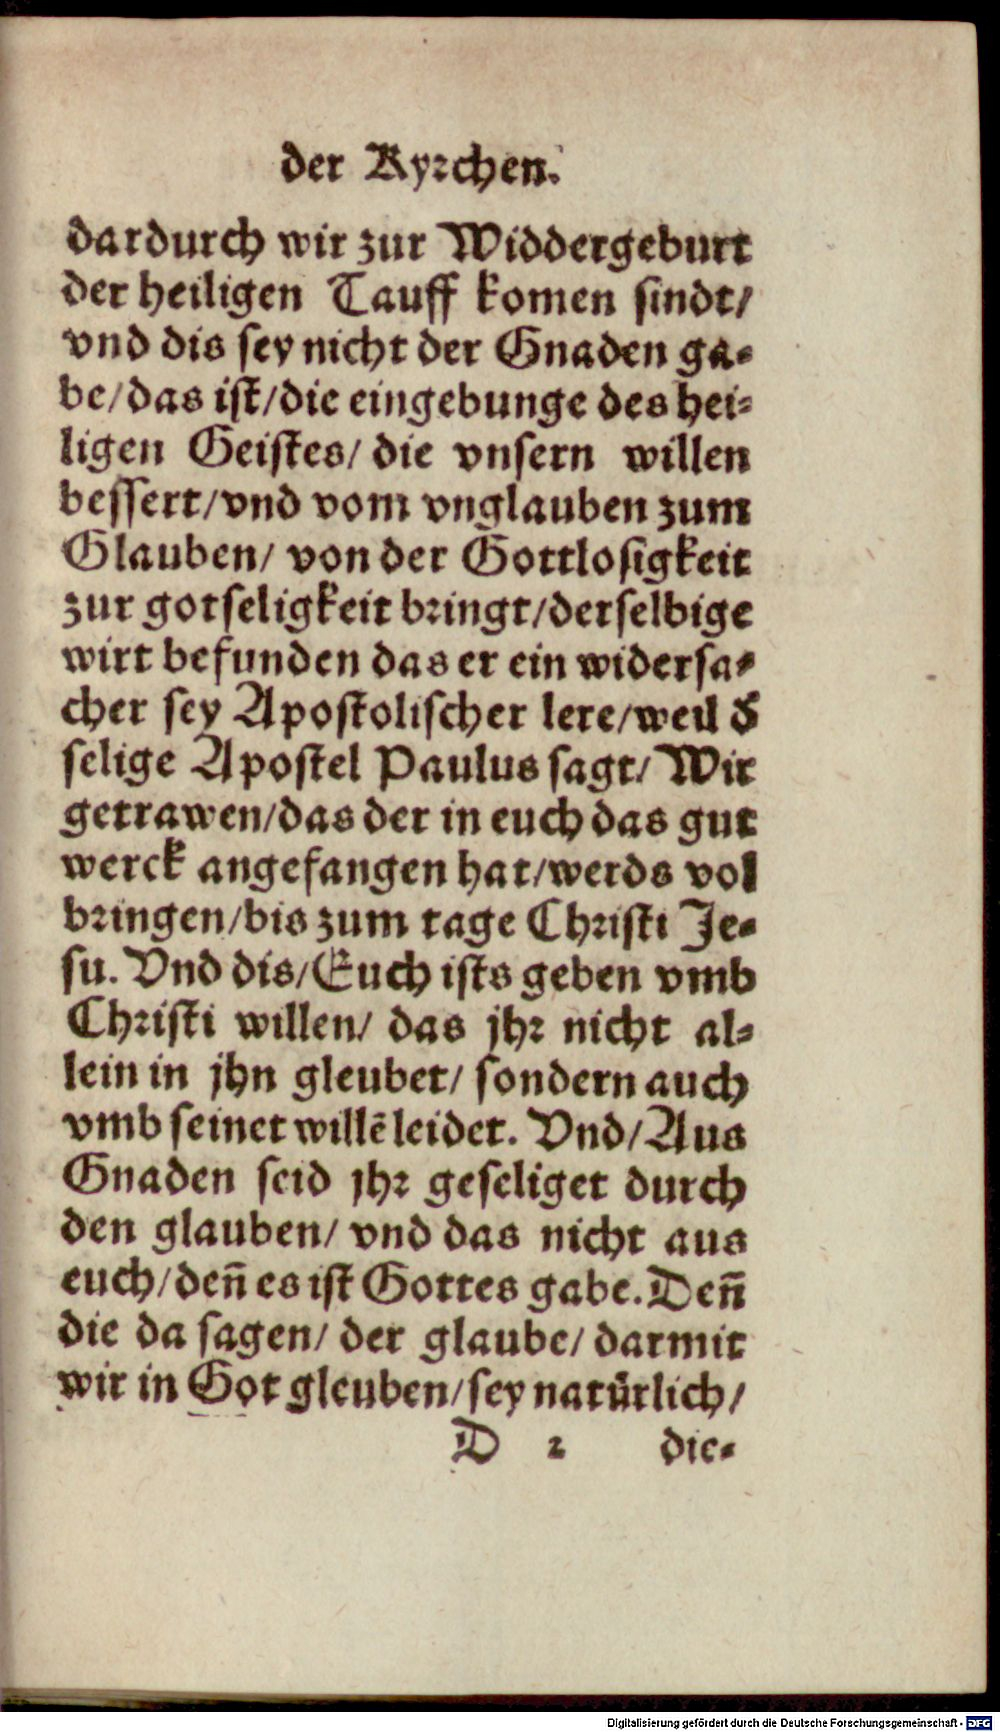 der Kyrchen.
dardurch wir zur Widdergeburt
der heiligen Tauff komen sindt/
vnd dis sey nicht der Gnaden ga-
be/das ist/die eingebunge des hei-
ligen Geistes/ die vnsern willen
bessert/vnd vom vnglauben zum
Glauben/ von der Gottlosigkeit
zur gotseligkeit bringt/derselbige
wirt befunden das er ein widersa-
cher sey Apostolischer lere/weil d̕
selige Apostel Paulus sagt/ Wir
getrawen/das der in euch das gut
werck angefangen hat/werds vol
bringen/bis zum tage Christi Je-
su. Vnd dis/Euch ists geben vmb
Christi willen/ das jhr nicht al-
lein in jhn gleubet/ sondern auch
vmb seinet willē leidet. Vnd/Aus
Gnaden seid jhr geseliget durch
den glauben/ vnd das nicht aus
euch/den̄ es ist Gottes gabe. Den̄
die da sagen/ der glaube/ darmit
wir in Got gleuben/sey natürlich/
D 2 die-
Digitalisierung gefördert durch die Deutsche Forschungsgemeinschaft - DFG